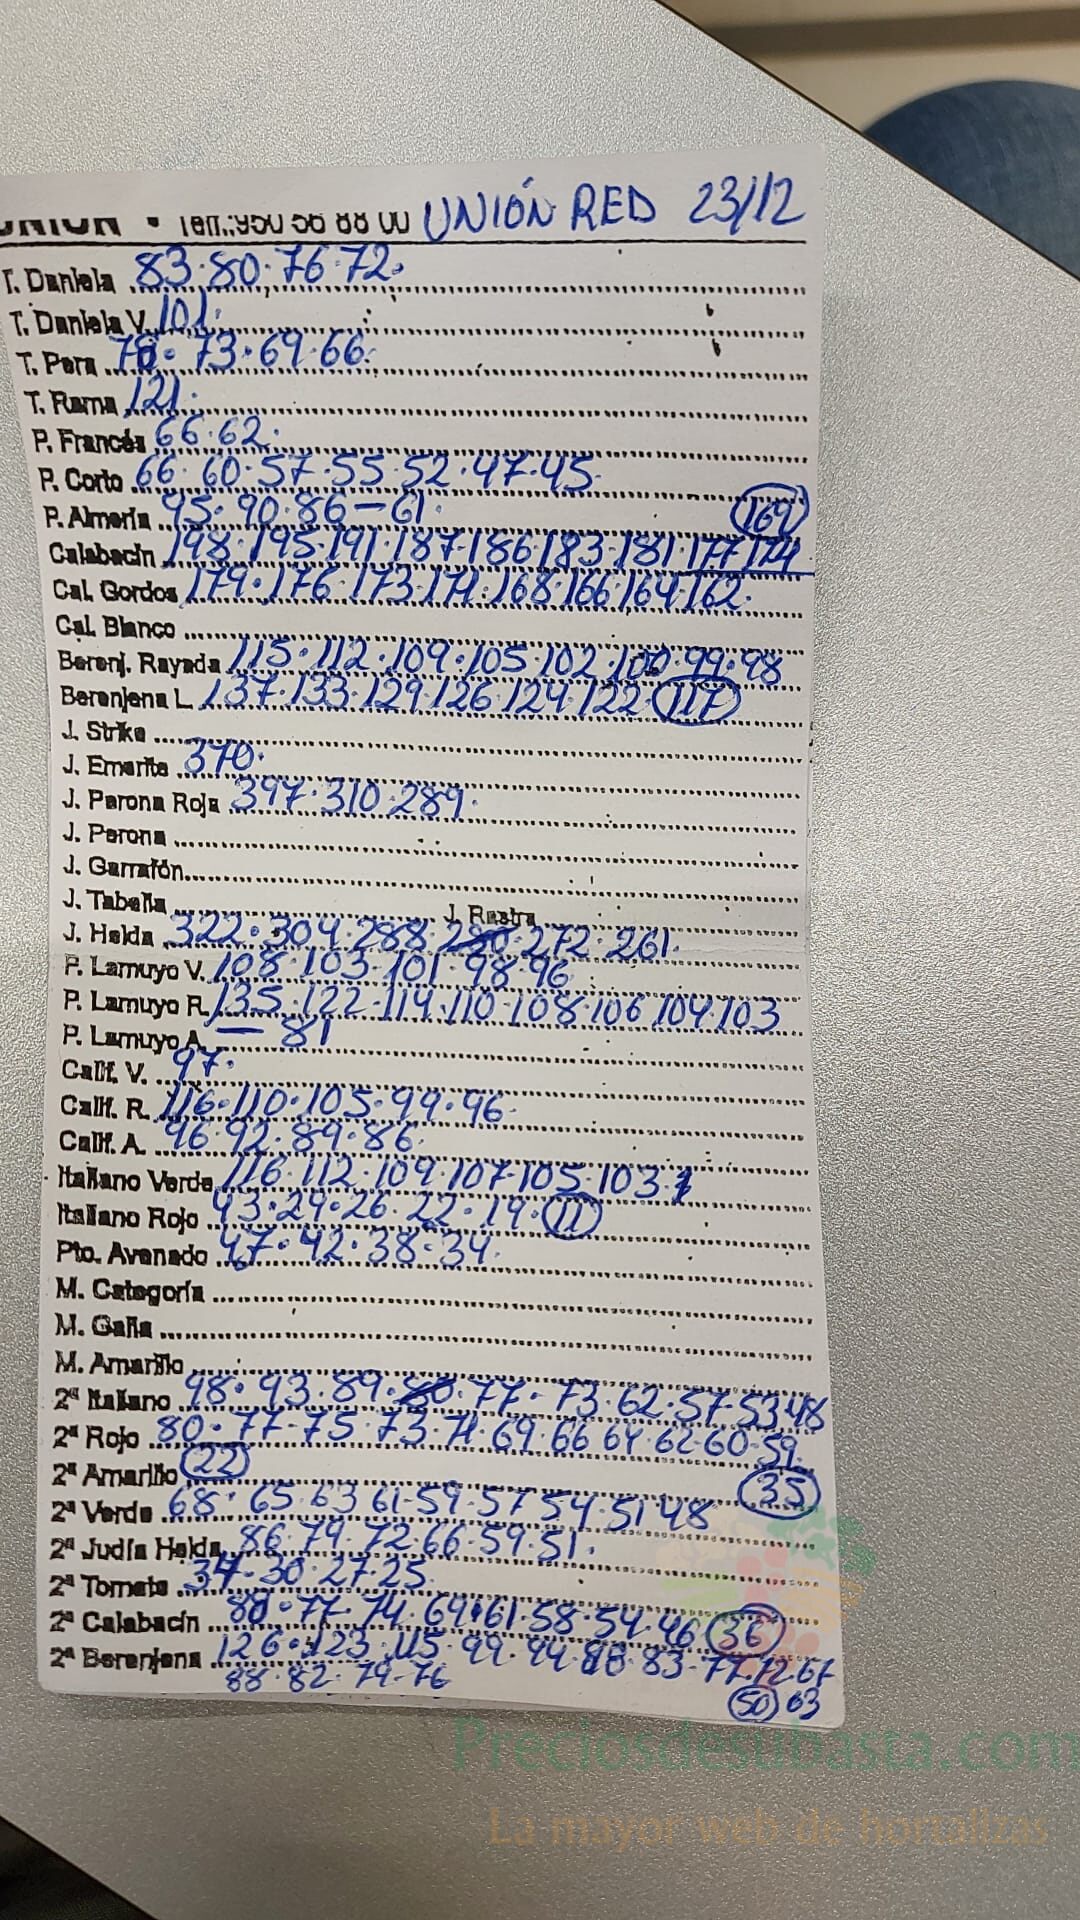 UNION • Telf.:950 56 88 00 UNIÓN RED 23/12
T. Daniela 83·80·76·72·
T. Daniela V. 101·
T. Pera 78·73·69·66·
T. Rama 121·
P. Francés 66·62·
P. Corto 66·60·57·55·52·47·45·
P. Almería 95·90·86—61·
(169)
Calabacín 198·195·191·187·186·183·181·177·174
Cal. Gordos 179·176·173·171·168·166·164·162·
Cal. Blanco
Berenj. Rayada 115·112·109·105·102·100·99·98
Berenjena L. 137·133·129·126·124·122·(117)
J. Strike
J. Emerite 370·
J. Perona Roja 397·310·289·
J. Perona
J. Garrafón
J. Tabella J. Rastra
J. Helda 322·304·288·280·272·261·
P. Lamuyo V. 108·103·101·98·96
P. Lamuyo R. 135·122·114·110·108·106·104·103
P. Lamuyo A. — 81
Calif. V. 97·
Calif. R. 116·110·105·99·96·
Calif. A. 96·92·89·86·
Italiano Verde 116·112·109·107·105·103·
Italiano Rojo 43·29·26·22·19·(11)
Pto. Avenado 47·42·38·34·
M. Categoría
M. Galia
M. Amarillo
2ª Italiano 98·93·89·80·77·73·62·57·53·48
2ª Rojo 80·77·75·73·71·69·66·64·62·60·59·
2ª Amarillo (22) (35)
2ª Verde 68·65·63·61·59·57·54·51·48
2ª Judía Helda 86·79·72·66·59·51·
2ª Tomate 34·30·27·25·
2ª Calabacín 80·77·74·69·61·58·54·46·(36)
2ª Berenjena 126·123·115·99·94·88·83·77·72·67
88·82·79·76 (50) 63
Preciosdesubasta.com
La mayor web de hortalizas